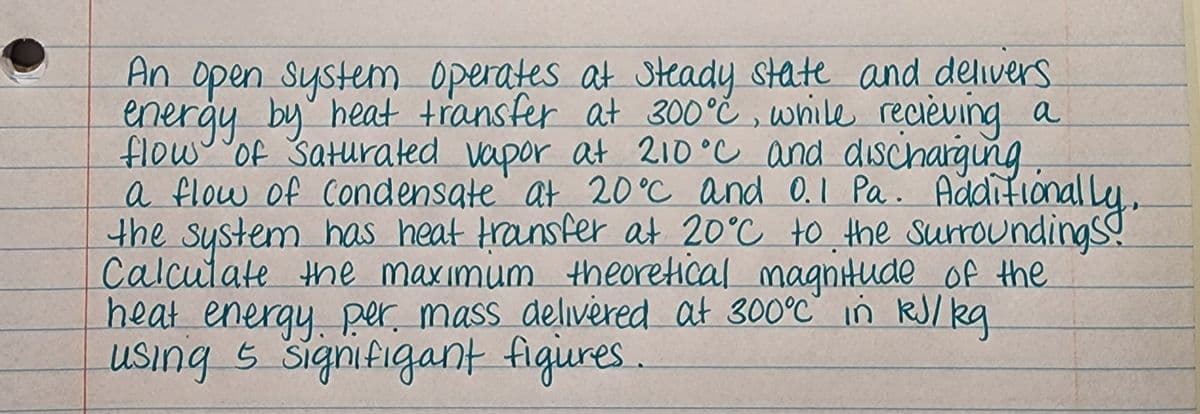 An open system operates at steady state and delivers
energy by heat transfer at 300°C, while recieving a
flow of saturated vapor at 210°C and discharging
a flow of condensate at 20°C and 0.1 Pa. Additionally,
the system has heat transfer at 20°C to the surroundings.
Calculate the maximum theoretical magnitude of the
heat energy per mass delivered at 300°C in kJ/kg
using 5 signifigant figures.